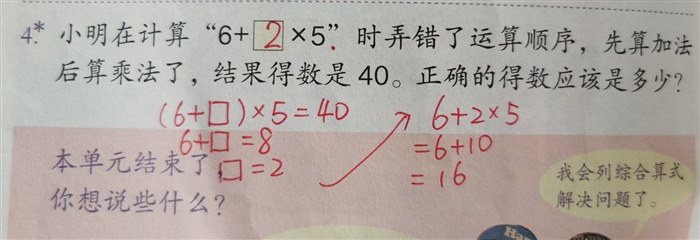 4.* 小明在计算“6+2×5”时弄错了运算顺序，先算加法
后算乘法了，结果得数是 40。正确的得数应该是多少？
(6+□)×5=40
6+□=8
□=2
6+2×5
=6+10
=16
本单元结束了，
你想说些什么？
我会列综合算式
解决问题了。